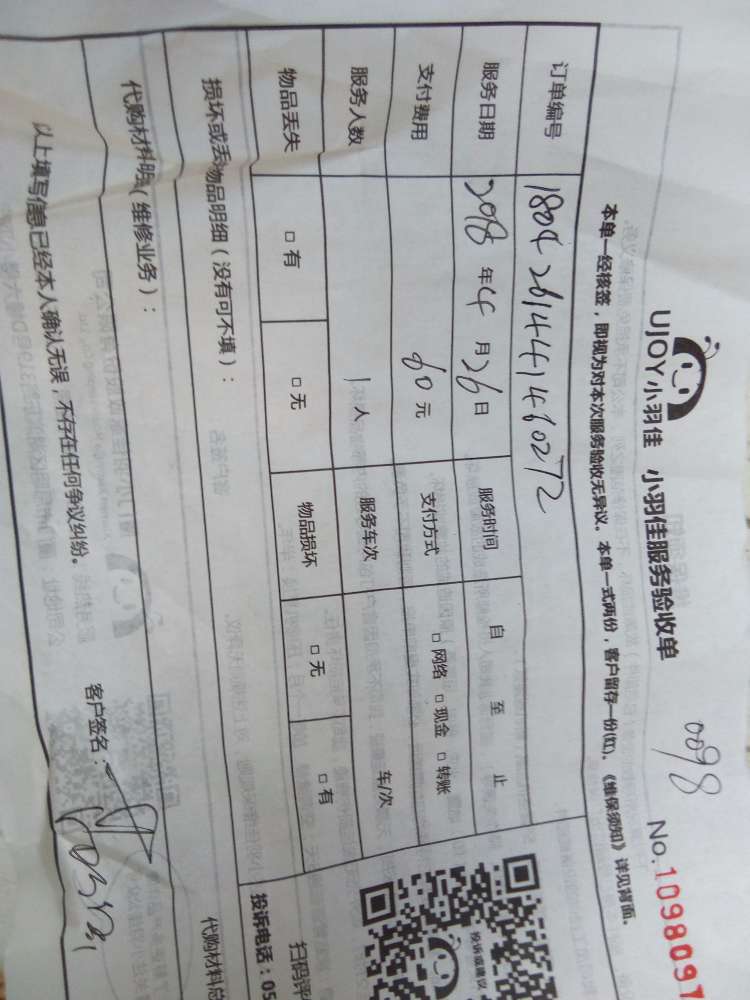 UJOY小羽佳 小羽佳服务验收单
0098
No.1098097
本单一经核签，即视为对本次服务验收无异议。本单一式两份，客户留存一份(红)。《维保须知》详见背面。
订单编号 180426144141460272
服务日期 2018 年 4 月 26 日 服务时间 自 至 止
支付费用 60 元 支付方式 □ 网络 □ 现金 □ 转账
服务人数 1 人 服务车次 车/次
物品丢失 □ 有 □ 无 物品损坏 □ 无 □ 有
损坏或丢物品明细（没有可不填）：
代购材料明（维修业务）：
代购材料总
以上填写信息已经本人确认无误，不存在任何争议纠纷。
客户签名：
投诉或建议
扫码评
投诉电话：05